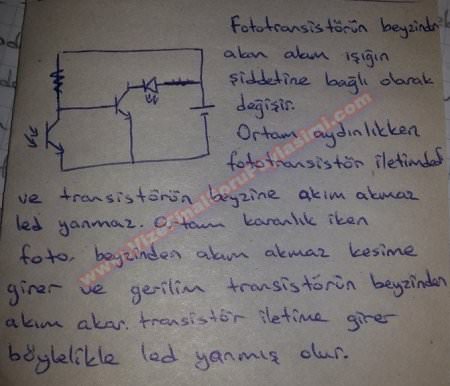 Fototransistörün beyzinden
akan akım ışığın
şiddetine bağlı olarak
değişir.
Ortam aydınlıkken
fototransistör iletimdef
ve transistörün beyzine akım akmaz
led yanmaz. Ortam karanlık iken
foto. beyzinden akım akmaz kesime
girer ve gerilim transistörün beyzinden
akım akar. transistör iletime girer
böylelikle led yanmış olur.